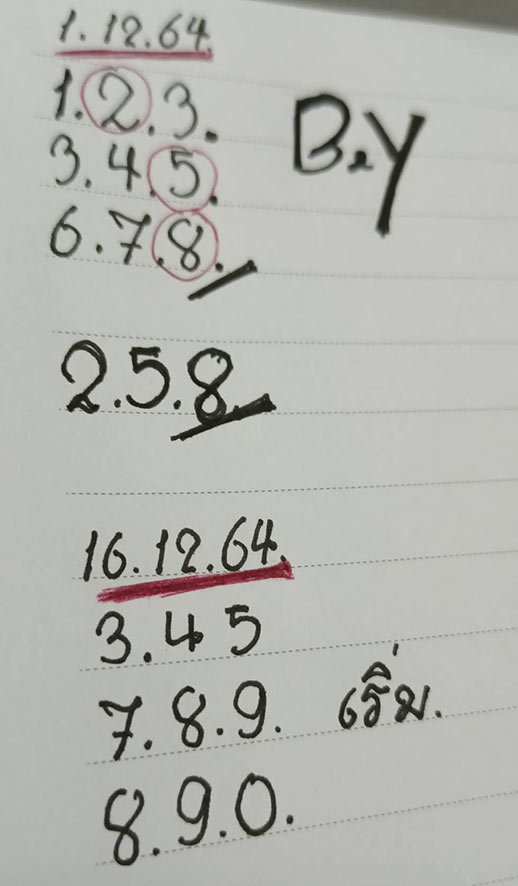 1.12.64.
1.2.3.
B.Y
3.4.5.
6.7.8.
2.5.8.
16.12.64.
3.45
7.8.9. เริ่ม.
8.9.0.